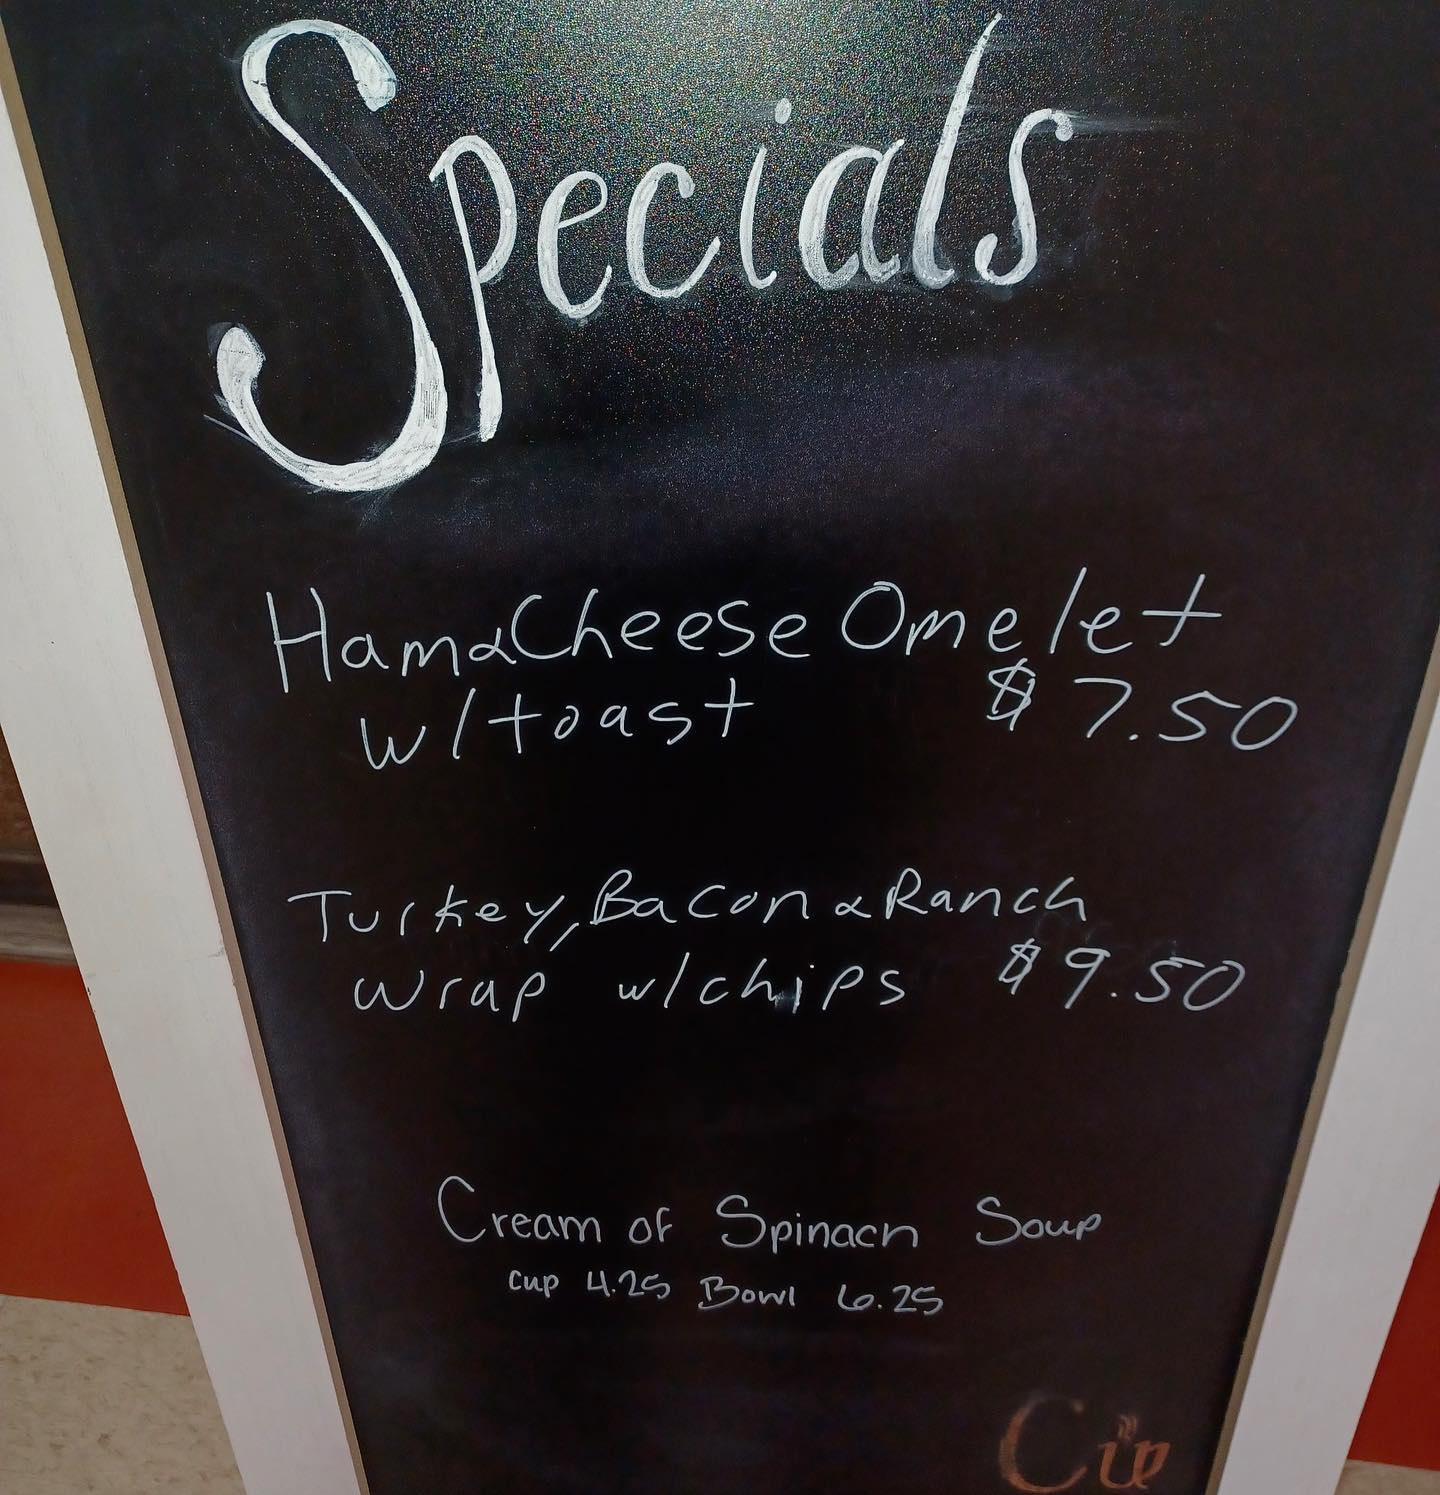 Specials
Ham & Cheese Omelet
w/toast $7.50
Turkey, Bacon & Ranch
Wrap w/chips $9.50
Cream of Spinach Soup
cup 4.25 Bowl 6.25